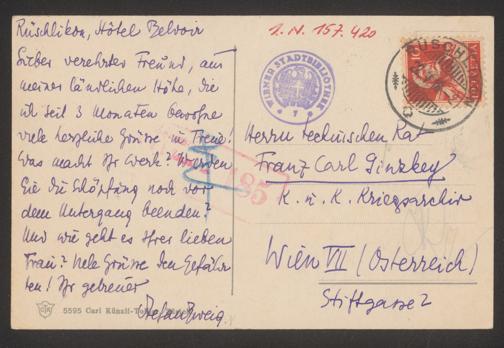 Rüschlikon, Hôtel Belvoir
Lieber verehrter Freund, aus
meiner ländlichen Höhe, die
ich seit 3 Monaten bewohne
viele herzliche Grüsse in Treue!
Was macht Ihr Werk? Werden
Sie die Schöpfung noch vor
dem Untergang beenden?
Und wie geht es Ihrer lieben
Frau? Viele Grüsse den Gefähr-
ten! Ihr getreuer
Stefan Zweig
5595 Carl Künzli-
I. N. 157.420
WIENER STADTBIBLIOTHEK
* 7 *
HELVETIA
10
RÜSCHLIKON
Herrn technischen Rat
Franz Carl Ginzkey
K. u. K. Kriegsarchiv
Wien VII (Österreich)
Stiftgasse 2
185